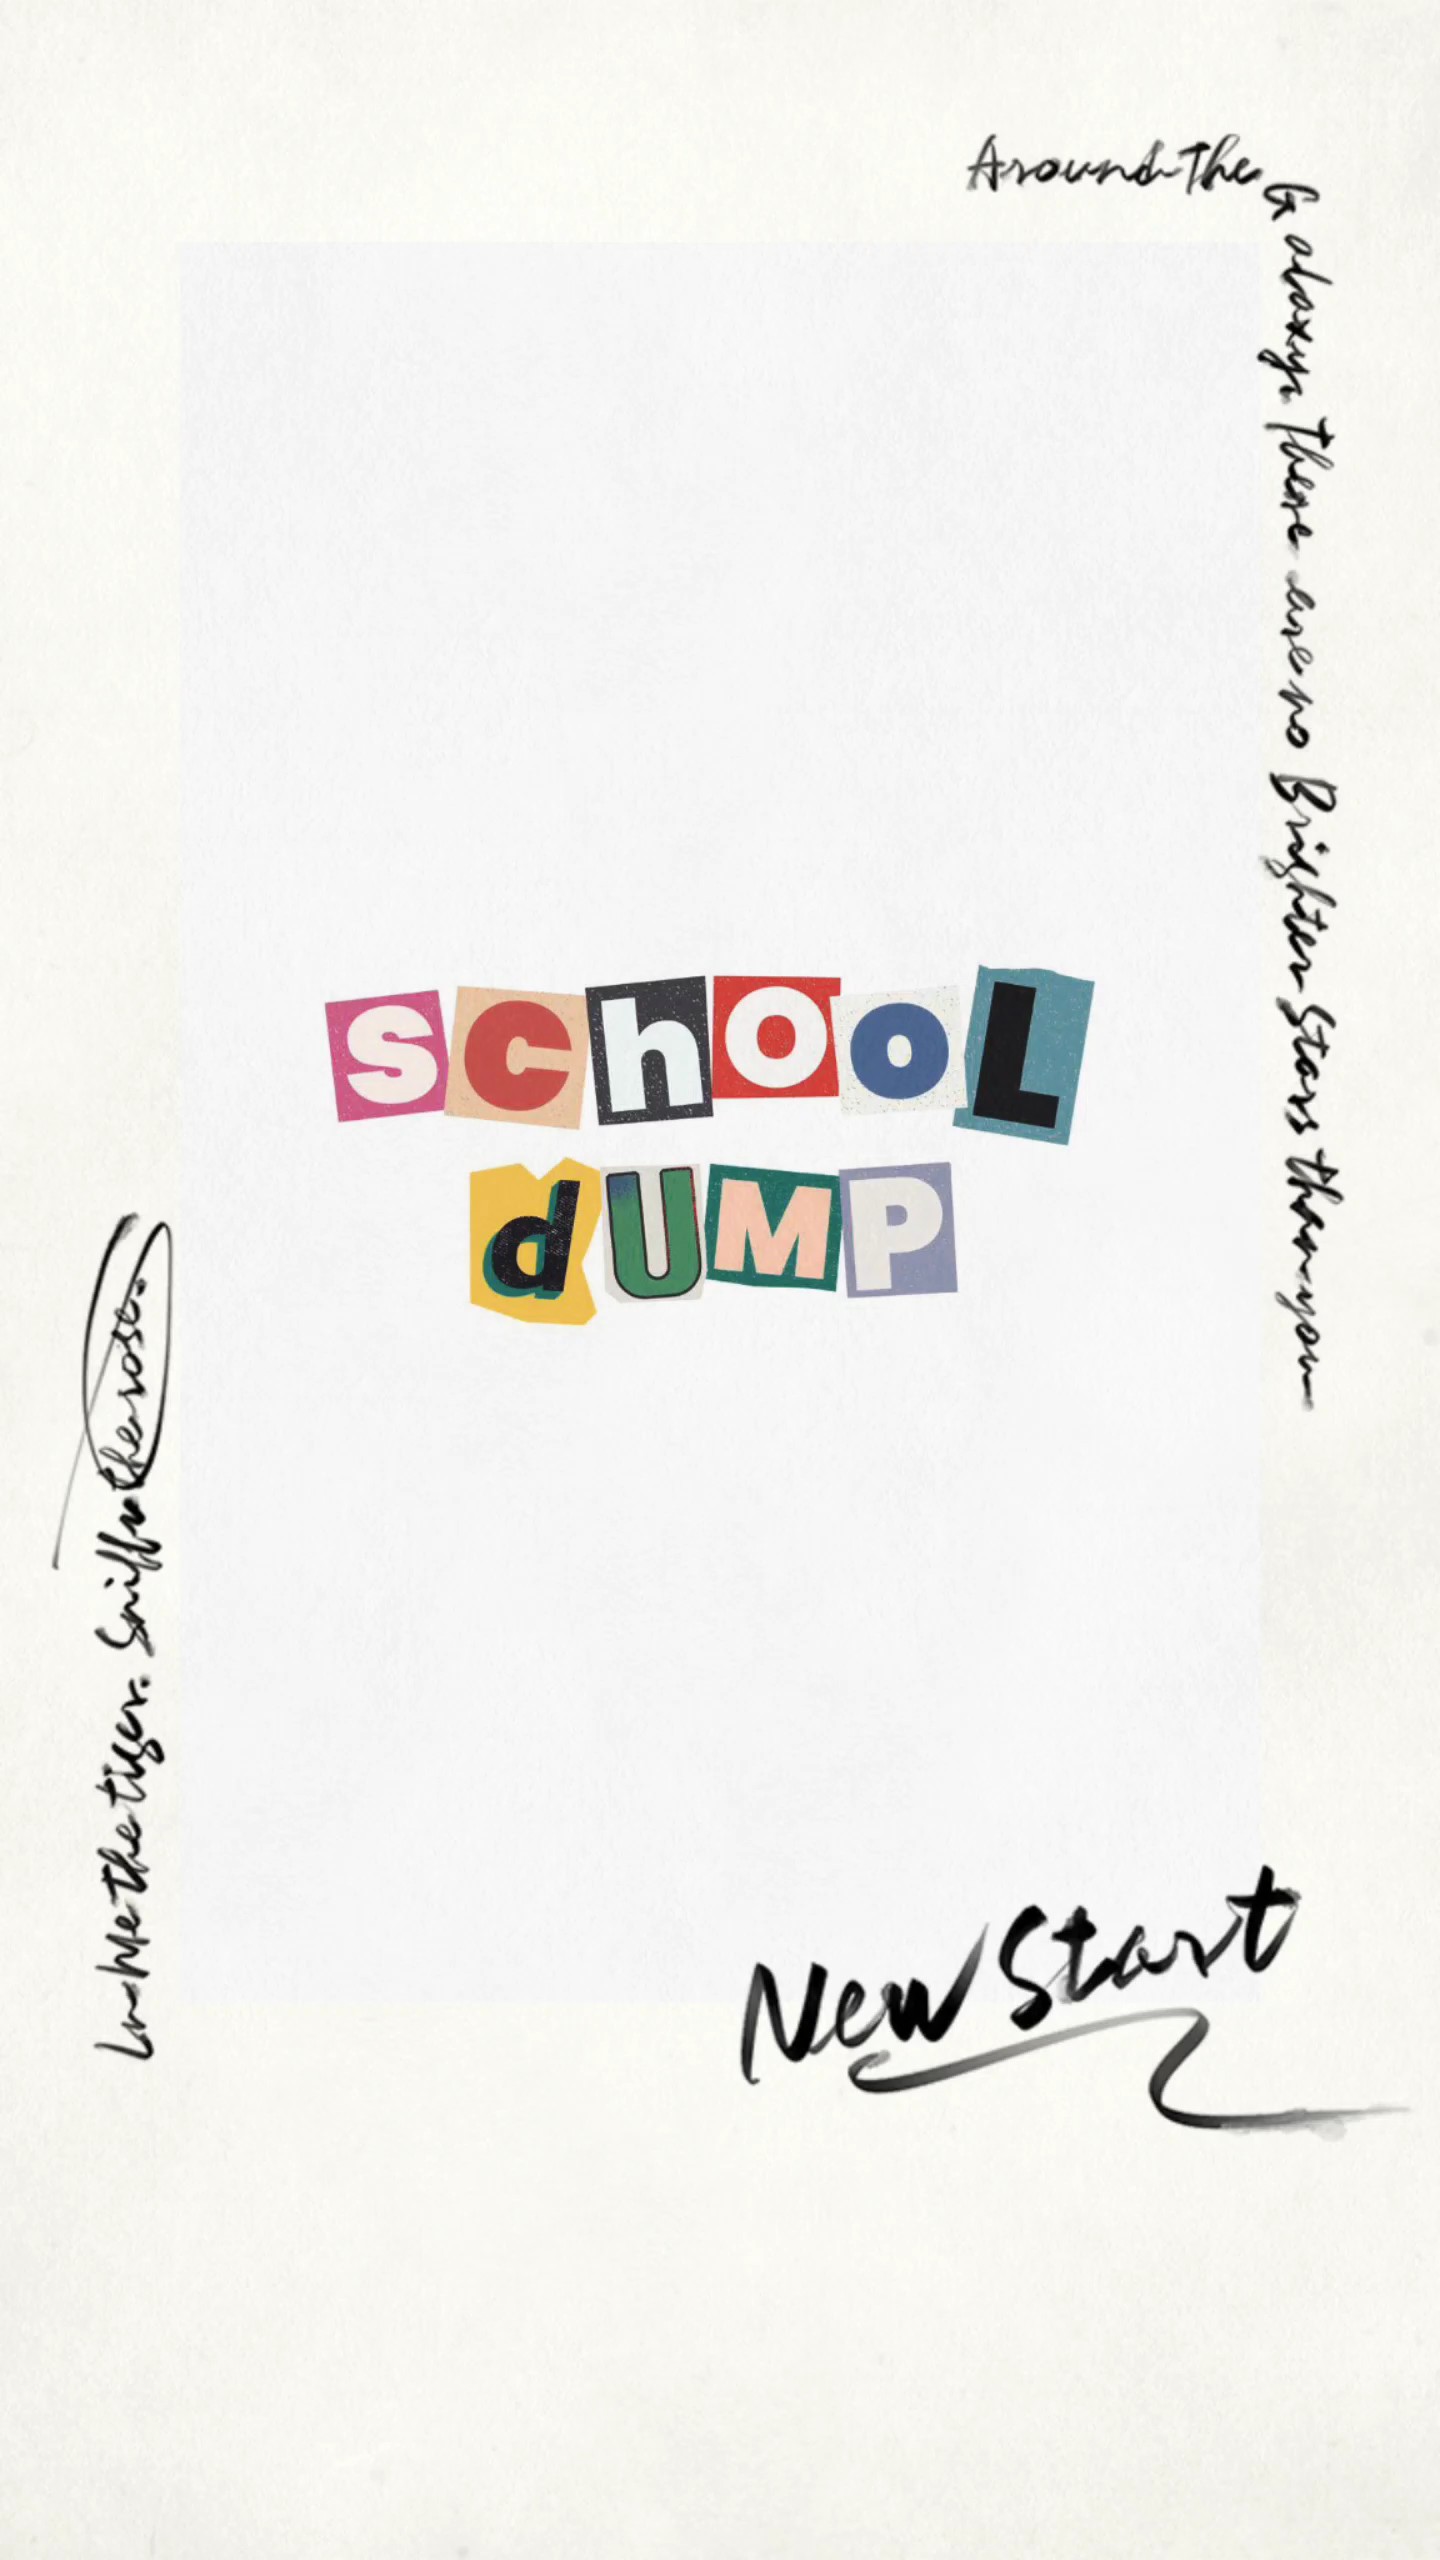 Around the Galaxy. There are no Brighter Stars than you
schOoL
dUMP
In Me the tiger. Sniffs the rose.
New Start